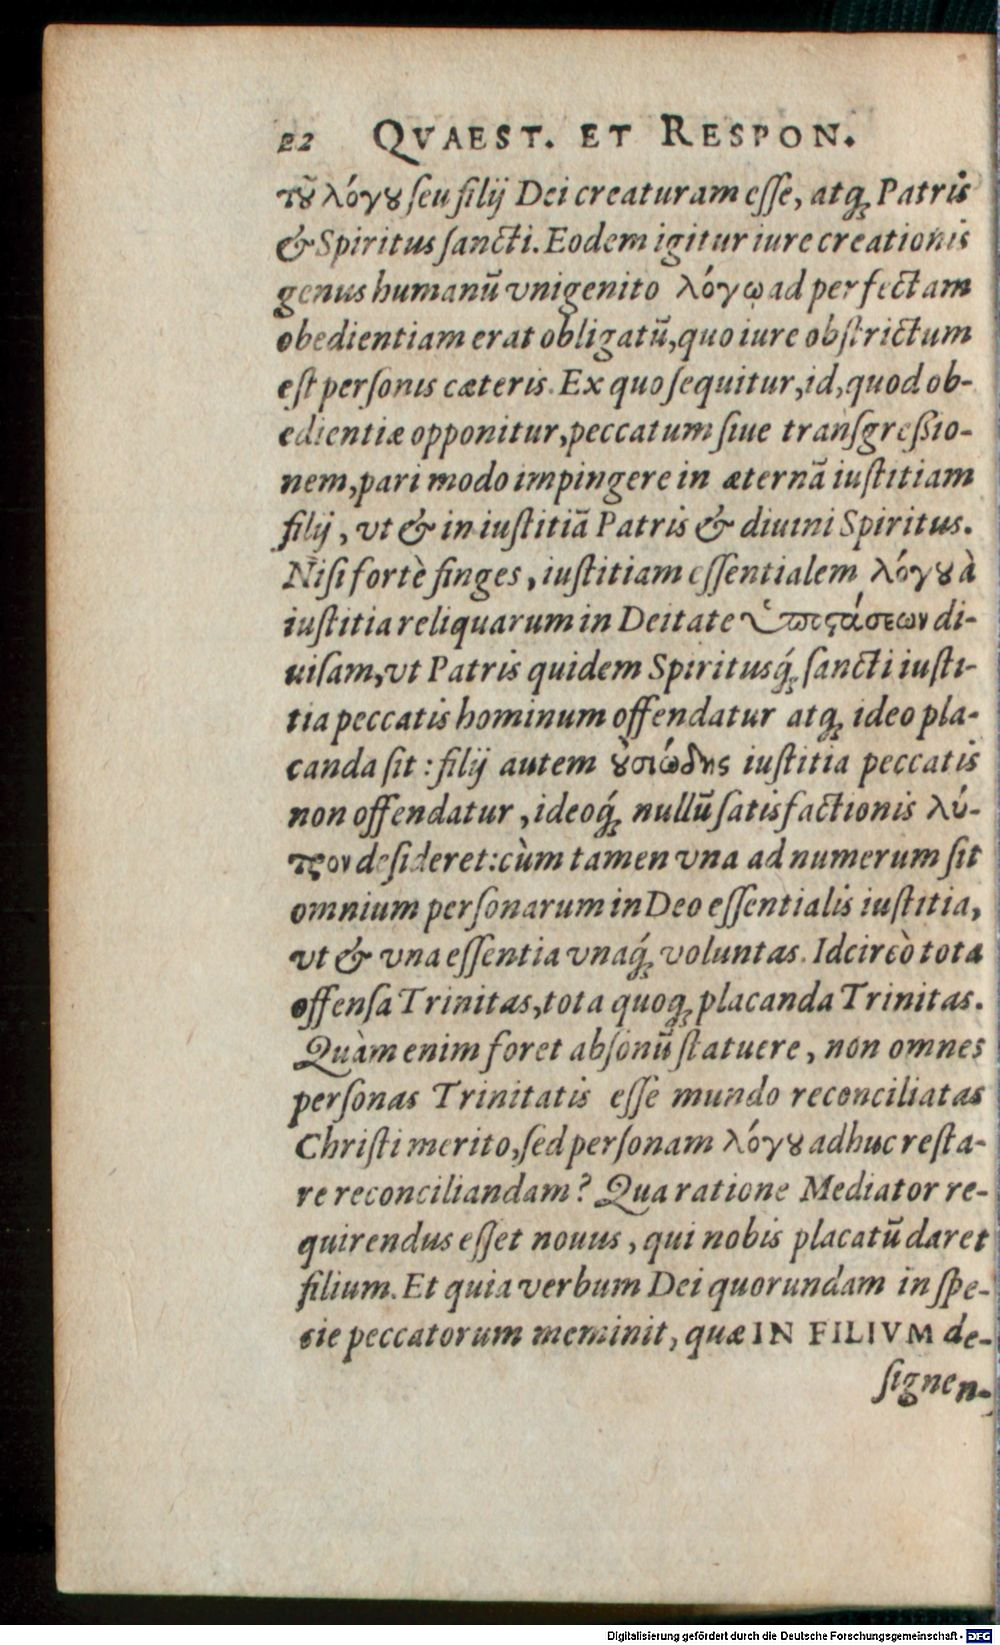 22 QVAEST. ET RESPON.
τȣ͂ λόγȣ ſeu filij Dei creaturam eſſe, atq; Patris
& Spiritus ſancti. Eodem igitur iure creationis
genus humanũ vnigenito λόγῳ ad perfectam
obedientiam erat obligatũ, quo iure obſtrictum
eſt perſonis cæteris. Ex quo ſequitur, id, quod ob-
edientiæ opponitur, peccatum ſiue tranſgreſsio-
nem, pari modo impingere in æternã iuſtitiam
filij, vt & in iuſtitiã Patris & diuini Spiritus.
Niſi fortè finges, iuſtitiam eſſentialem λόγȣ à
iuſtitia reliquarum in Deitate ὑποϛάσεων di-
uiſam, vt Patris quidem Spiritusq́; ſancti iuſti-
tia peccatis hominum offendatur atq; ideo pla-
canda ſit: filij autem ȣ̓σιώδης iuſtitia peccatis
non offendatur, ideoq́; nullũ ſatisfactionis λύ-
τρον deſideret: cùm tamen vna ad numerum ſit
omnium perſonarum in Deo eſſentialis iuſtitia,
vt & vna eſſentia vnaq́; voluntas. Idcircò tota
offenſa Trinitas, tota quoq; placanda Trinitas.
Quàm enim foret abſonũ ſtatuere, non omnes
perſonas Trinitatis eſſe mundo reconciliatas
Chriſti merito, ſed perſonam λόγȣ adhuc reſta-
re reconciliandam? Qua ratione Mediator re-
quirendus eſſet nouus, qui nobis placatũ daret
filium. Et quia verbum Dei quorundam in ſpe-
cie peccatorum meminit, quæ IN FILIVM de-
ſignen-
Digitalisierung gefördert durch die Deutsche Forschungsgemeinschaft - DFG